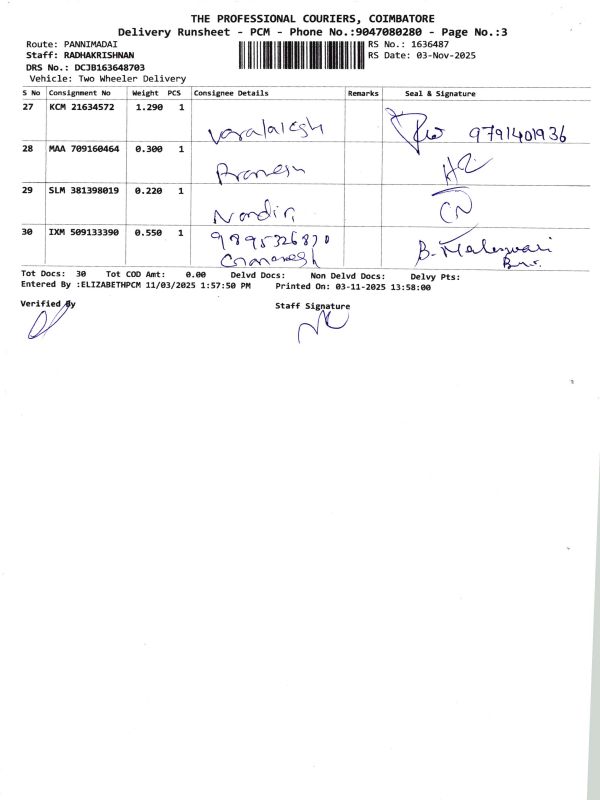 THE PROFESSIONAL COURIERS, COIMBATORE
Delivery Runsheet - PCM - Phone No.:9047080280 - Page No.:3
Route: PANNIMADAI RS No.: 1636487
Staff: RADHAKRISHNAN RS Date: 03-Nov-2025
DRS No.: DCJB163648703
Vehicle: Two Wheeler Delivery
S No Consignment No Weight PCS Consignee Details Remarks Seal & Signature
27 KCM 21634572 1.290 1
9791401936
28 MAA 709160464 0.300 1
Pranesh
29 SLM 381398019 0.220 1
CN
30 IXM 509133390 0.550 1
B.
Tot Docs: 30 Tot COD Amt: 0.00 Delvd Docs: Non Delvd Docs: Delvy Pts:
Entered By :ELIZABETHPCM 11/03/2025 1:57:50 PM Printed On: 03-11-2025 13:58:00
Verified By Staff Signature